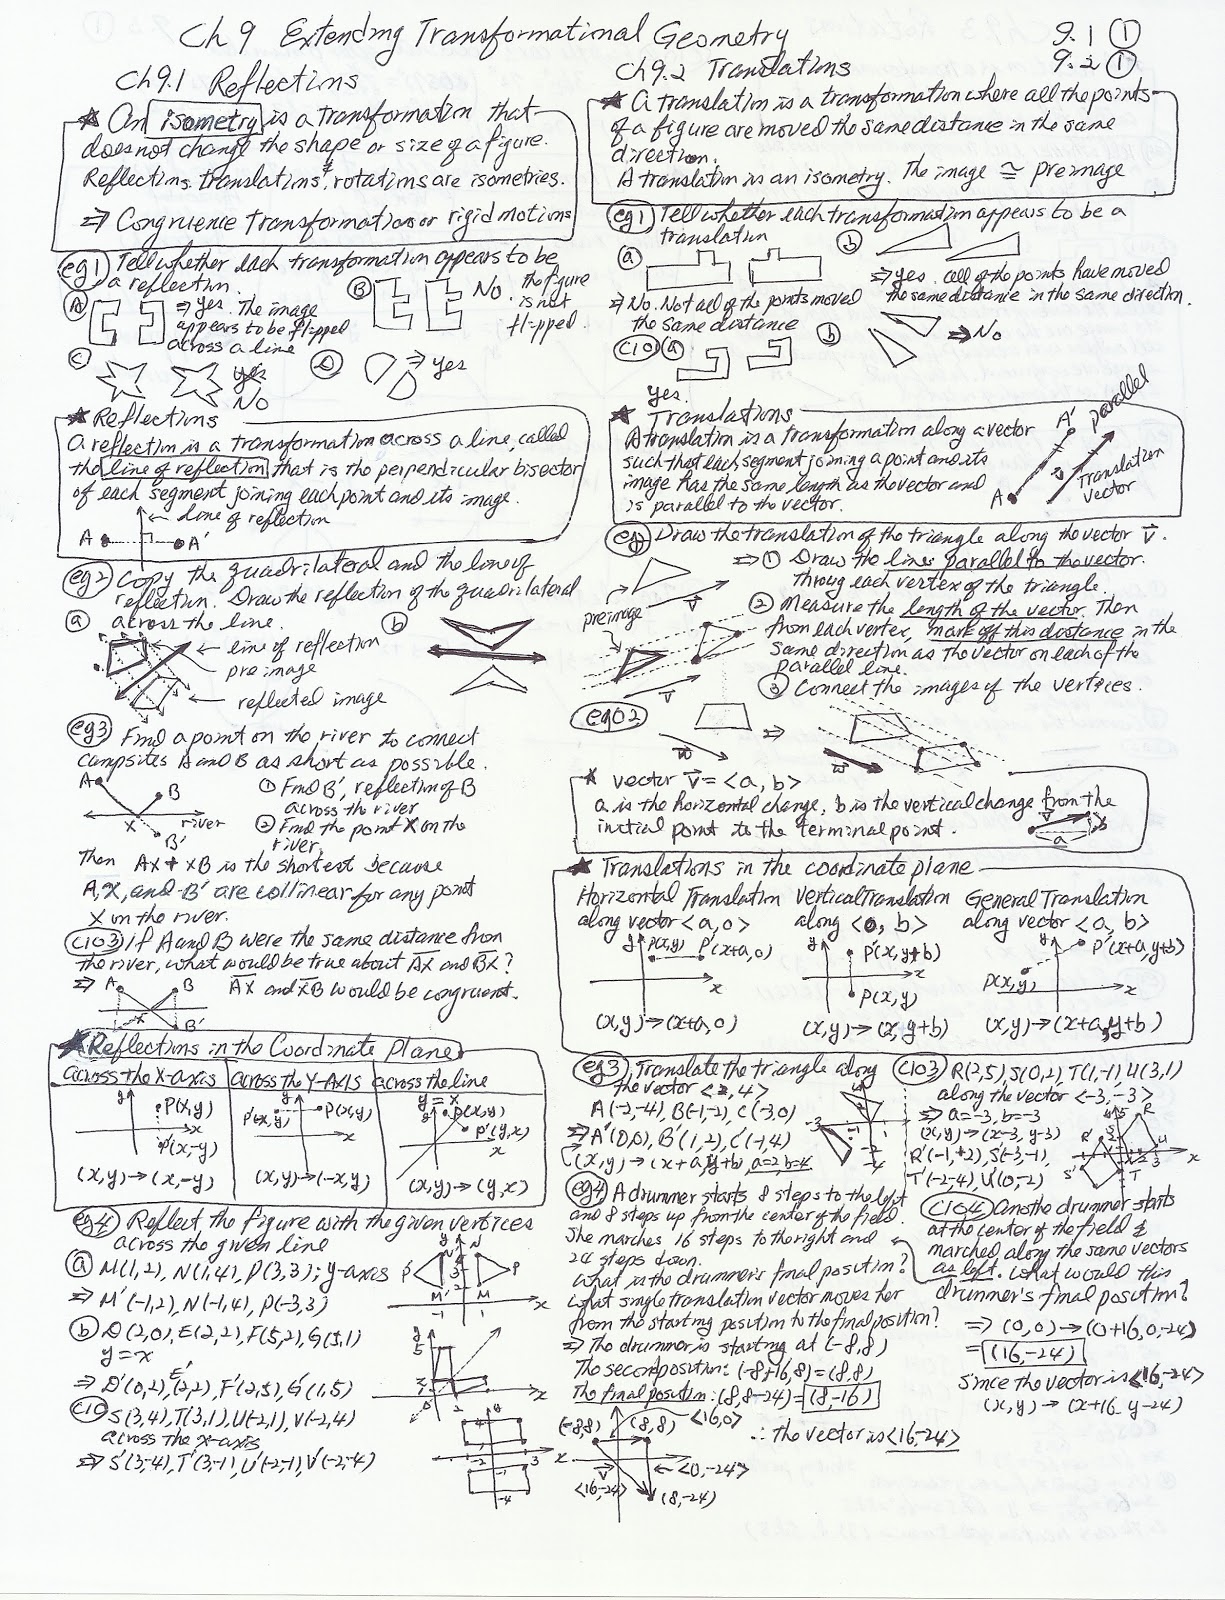 Ch 9 Extending Transformational Geometry
9.1 ①
9.2 ①
Ch9.1 Reflections
★ An isometry is a transformation that
does not change the shape or size of a figure.
Reflections, translations, & rotations are isometries.
⇒ Congruence Transformations or rigid motions
eg1 Tell whether each transformation appears to be
a reflection.
Ⓐ ⇒ yes. The image
appears to be flipped
across a line
Ⓑ No. the figure
is not
flipped.
Ⓒ yes
No
Ⓓ ⇒ yes
★ Reflections
A reflection is a transformation across a line, called
the line of reflection that is the perpendicular bisector
of each segment joining each point and its image.
← Line of reflection
A A'
eg2 Copy the quadrilateral and the line of
reflection. Draw the reflection of the quadrilateral
across the line.
ⓐ ← line of reflection
pre image
reflected image
ⓑ
eg3 Find a point on the river to connect
campsites A and B as short as possible.
A B X river B'
① Find B', reflection of B
across the river
② Find the point X on the
river.
Then AX + XB is the shortest because
A, X, and B' are collinear for any point
X on the river.
C103 if A and B were the same distance from
the river, what would be true about AX and BX?
⇒ A B AX and XB would be congruent.
X B'
★ Reflections in the Coordinate Plane
across the X-axis across the Y-Axis across the line
y = x
y P(x,y) x P'(x,-y)
y P'(-x,y) P(x,y) x
P(x,y) P'(y,x) x
(x,y)→(x,-y) (x,y)→(-x,y) (x,y)→(y,x)
eg4 Reflect the figure with the given vertices
across the given line
ⓐ M(1,2), N(1,4), P(3,3); y-axis
⇒ M'(-1,2), N(-1,4), P(-3,3)
ⓑ D(2,0), E(2,2), F(5,2), G(5,1)
y = x
E'
⇒ D'(0,2), (2,2), F'(2,5), G'(1,5)
C10 S(3,4), T(3,1), U(-2,1), V(-2,4)
across the x-axis
⇒ S'(3,-4), T'(3,-1), U'(-2,-1), V'(-2,-4)
Ch 9.2 Translations
★ A translation is a transformation where all the points
of a figure are moved the same distance in the same
direction.
A translation is an isometry. The image ≅ preimage
eg1 Tell whether each transformation appears to be a
translation
ⓐ
⇒ No. Not all of the points moved
the same distance
ⓑ
⇒ yes. all of the points have moved
the same distance in the same direction.
C101 ⓐ
yes.
ⓑ ⇒ No
★ Translations
A translation is a transformation along a vector
such that each segment joining a point and its
image has the same length as the vector and
is parallel to the vector.
A A' parallel
Translation
vector
eg Draw the translation of the triangle along the vector v.
⇒ ① Draw the lines parallel to the vector
throug each vertex of the triangle.
preimage v
② Measure the length of the vector. Then
from each vertex, mark off this distance in the
same direction as the vector on each of the
parallel line.
③ Connect the images of the vertices.
eg02 w ⇒ w
★ vector v = <a, b>
a is the horizontal change, b is the vertical change from the
initial point to the terminal point.
v b a
★ Translations in the coordinate plane
Horizontal Translation Vertical Translation General Translation
along vector <a, 0> along <0, b> along vector <a, b>
y P(x,y) P'(x+a,0) x
y P'(x,y+b) x P(x,y)
y P'(x+a,y+b) P(x,y) x
(x,y)→(x+a,0) (x,y)→(x,y+b) (x,y)→(x+a,y+b)
eg3 Translate the triangle along
the vector <2, 4>
A(-2,-4), B(-1,-2), C(-3,0)
⇒ A'(0,0), B'(1,2), C'(-1,4)
(x,y)→(x+a,y+b), a=2 b=4
C103 R(2,5), S(0,2), T(1,-1), U(3,1)
along the vector <-3, -3>
⇒ a=-3, b=-3
(x,y)→(x-3, y-3)
R'(-1,+2), S(-3,-1),
T'(-2,-4), U'(0,-2)
eg4 A drummer starts 8 steps to the left
and 8 steps up from the center of the field.
She marches 16 steps to the right and
24 steps down.
What is the drummer's final position?
What single translation vector moves her
from the starting position to the final position?
⇒ The drummer is starting at (-8,8)
The second position: (-8+16,8)=(8,8)
The final position: (8,8-24)=(8,-16)
(-8,8) (8,8) <16,0>
∴ the vector is <16,-24>
v <0,-24>
<16,-24> (8,-24)
C104 Another drummer starts
at the center of the field &
marched along the same vectors
as left. What would this
drummer's final position?
⇒ (0,0)→(0+16,0,-24)
= (16,-24)
Since the vector is <16,-24>
(x,y)→(x+16, y-24)